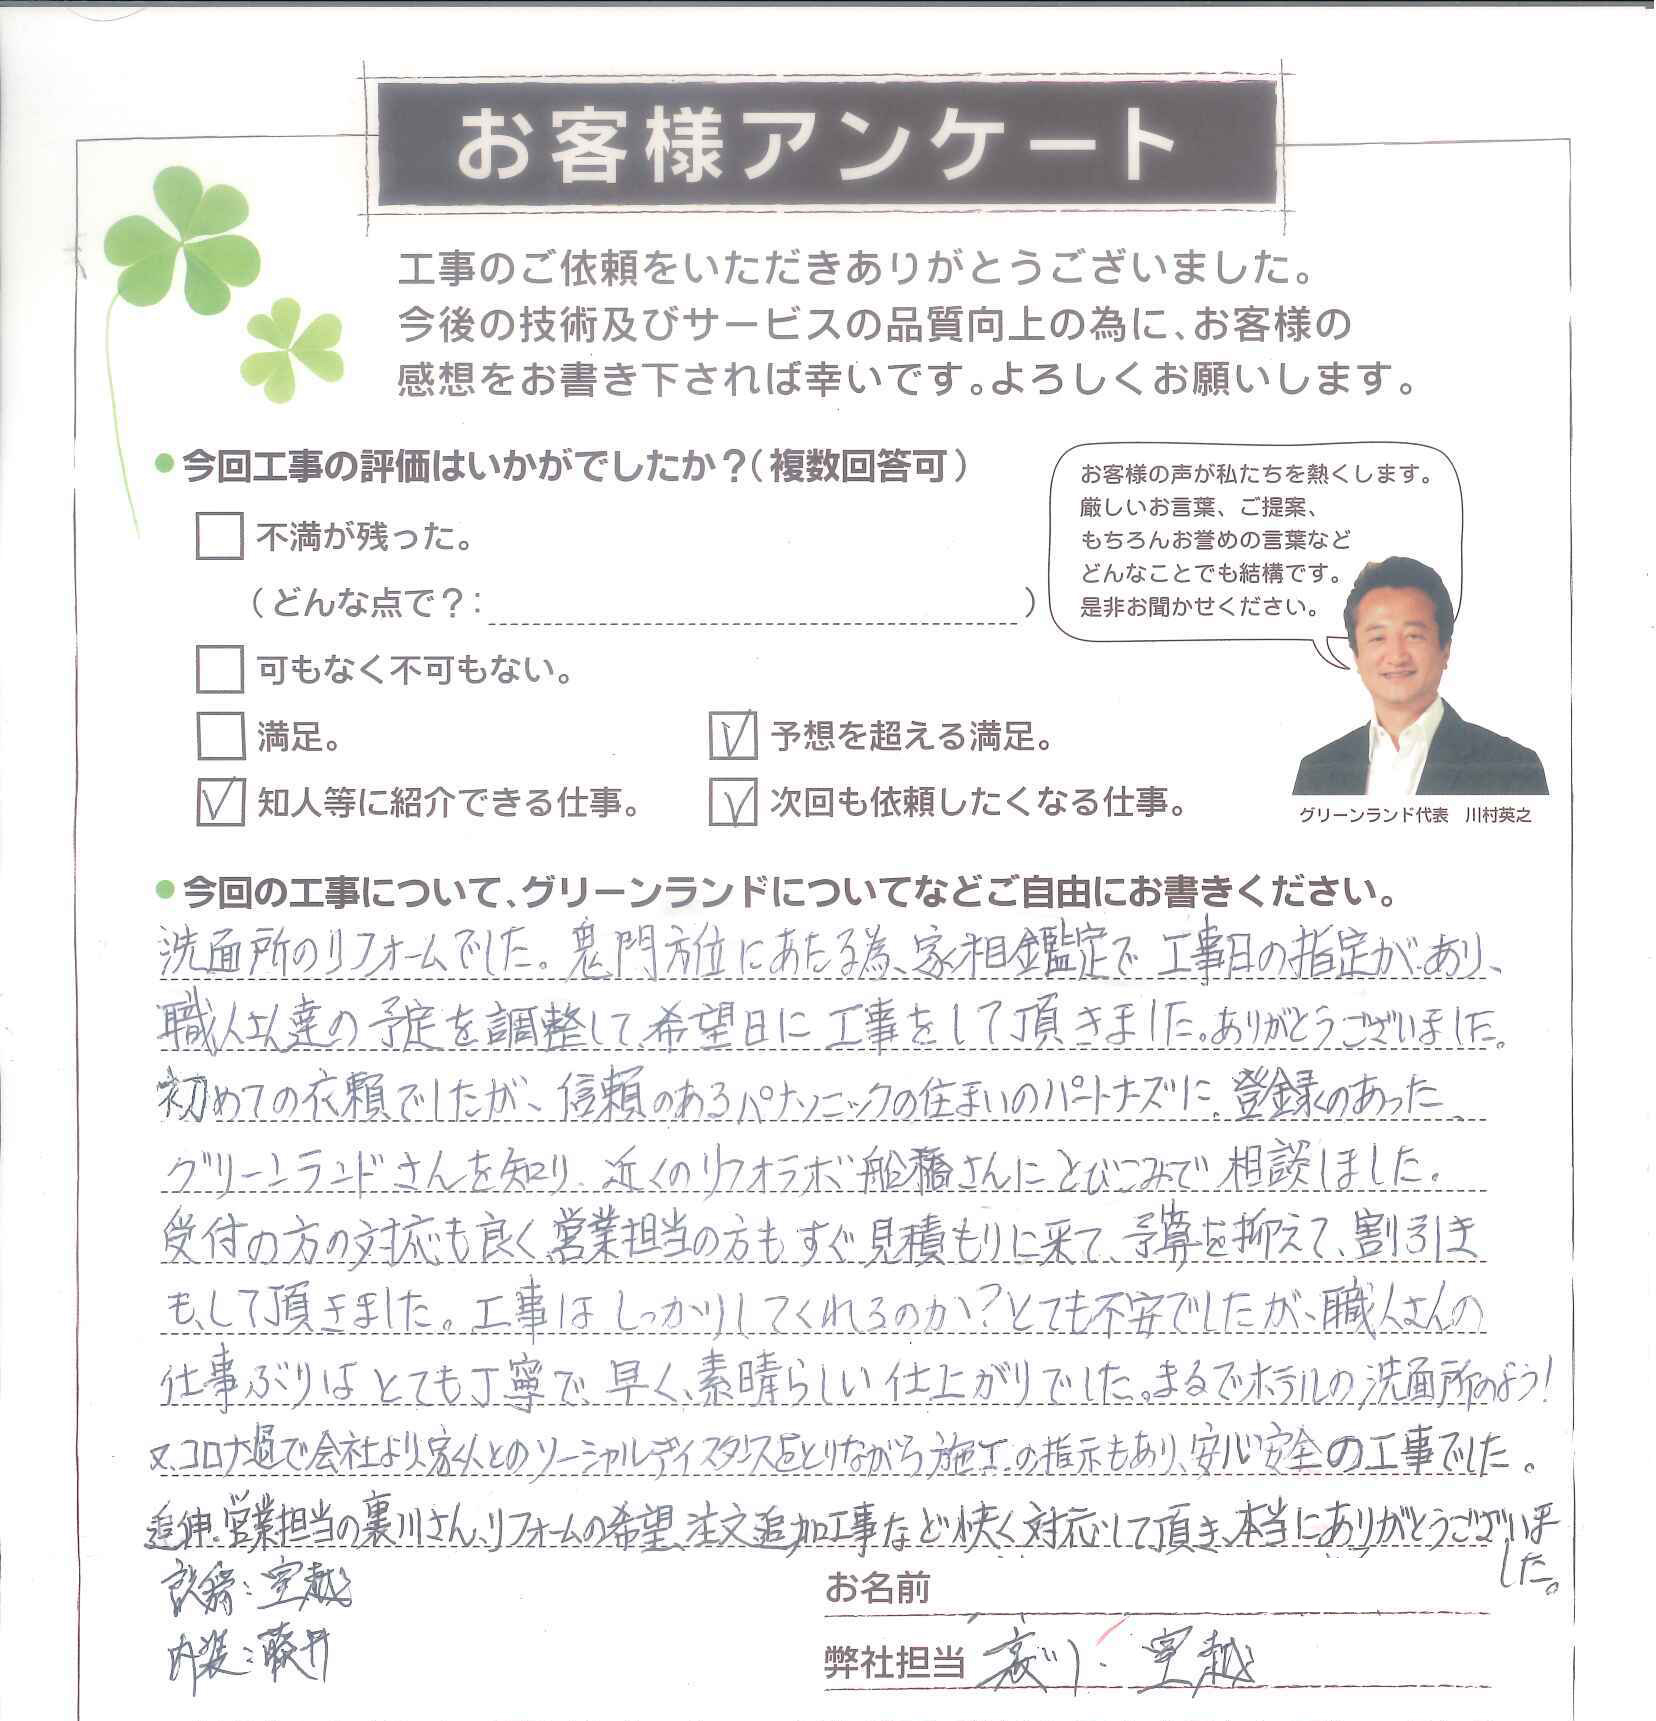 お客様アンケート
工事のご依頼をいただきありがとうございました。
今後の技術及びサービスの品質向上の為に、お客様の
感想をお書き下されば幸いです。よろしくお願いします。
●今回工事の評価はいかがでしたか？（複数回答可）
不満が残った。
（どんな点で？：　　　）
可もなく不可もない。
満足。
予想を超える満足。
知人等に紹介できる仕事。
次回も依頼したくなる仕事。
お客様の声が私たちを熱くします。
厳しいお言葉、ご提案、
もちろんお誉めの言葉など
どんなことでも結構です。
是非お聞かせください。
グリーンランド代表　川村英之
●今回の工事について、グリーンランドについてなどご自由にお書きください。
洗面所のリフォームでした。鬼門方位にあたる為、家相鑑定で工事日の指定があり、
職人さん達の予定を調整して、希望日に工事をして頂きました。ありがとうございました。
初めての依頼でしたが、信頼のあるパナソニックの住まいのパートナーズに登録のあった
グリーンランドさんを知り、近くのリフォラボ船橋さんにとびこみで相談しました。
受付の方の対応も良く、営業担当の方もすぐ見積もりに来て、予算を抑えて、割引き
もして頂きました。工事はしっかりしてくれるのか？とても不安でしたが、職人さんの
仕事ぶりはとても丁寧で、早く、素晴らしい仕上がりでした。まるでホテルの洗面所のよう！
又、コロナ過で会社より、家人とのソーシャルディスタンスをとりながら施工の指示もあり、安心安全の工事でした。
追伸.営業担当の裏川さん、リフォームの希望、注文追加工事など快く対応して頂き、本当にありがとうございま
した。
設備：室越
内装：藤井
お名前
弊社担当 裏川・室越